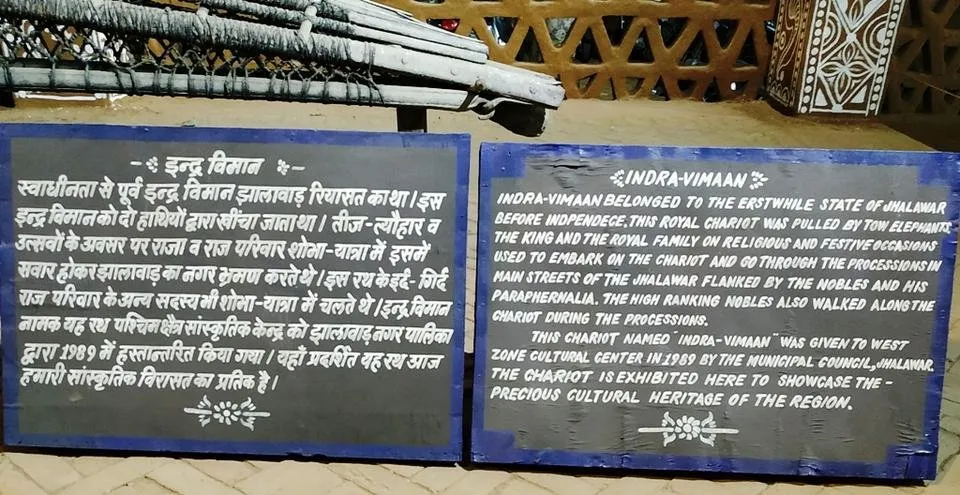 इन्द्र विमान
स्वाधीनता से पूर्व इन्द्र विमान झालावाड़ रियासत का था। इस
इन्द्र विमान को दो हाथियों द्वारा खींचा जाता था। तीज-त्यौहार व
उत्सवों के अवसर पर राजा व राज परिवार शोभा-यात्रा में इसमें
सवार होकर झालावाड़ का नगर भ्रमण करते थे। इस रथ के इर्द-गिर्द
राज परिवार के अन्य सदस्य भी शोभा-यात्रा में चलते थे। इन्द्र विमान
नामक यह रथ पश्चिम क्षैत्र सांस्कृतिक केन्द्र को झालावाड़ नगर पालिका
द्वारा 1989 में हस्तान्तरित किया गया। यहाँ प्रदर्शित यह रथ आज
हमारी सांस्कृतिक विरासत का प्रतिक है।
INDRA-VIMAAN
INDRA-VIMAAN BELONGED TO THE ERSTWHILE STATE OF JHALAWAR
BEFORE INDPENDECE. THIS ROYAL CHARIOT WAS PULLED BY TOW ELEPHANTS
THE KING AND THE ROYAL FAMILY ON RELIGIOUS AND FESTIVE OCCASIONS
USED TO EMBARK ON THE CHARIOT AND GO THROUGH THE PROCESSIONS IN
MAIN STREETS OF THE JHALAWAR FLANKED BY THE NOBLES AND HIS
PARAPHERNALIA. THE HIGH RANKING NOBLES ALSO WALKED ALONG THE
CHARIOT DURING THE PROCESSIONS.
THIS CHARIOT NAMED "INDRA-VIMAAN" WAS GIVEN TO WEST
ZONE CULTURAL CENTER IN 1989 BY THE MUNICIPAL COUNCIL, JHALAWAR.
THE CHARIOT IS EXHIBITED HERE TO SHOWCASE THE -
PRECIOUS CULTURAL HERITAGE OF THE REGION.